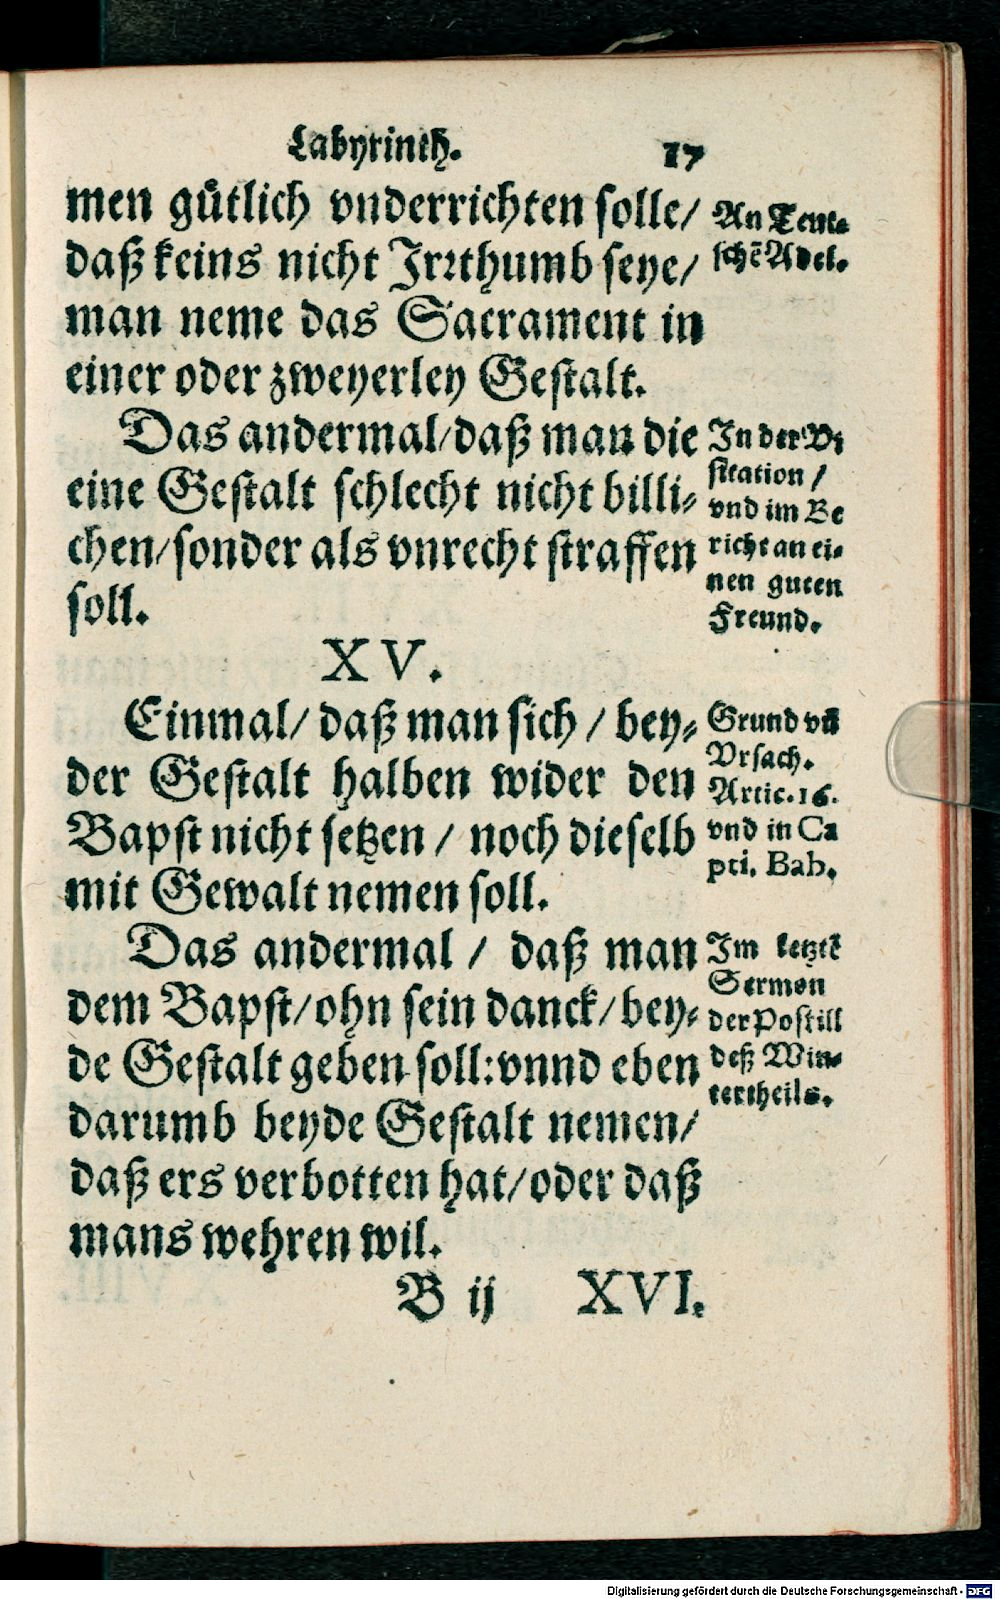 Labyrinth. 17
men guͤtlich vnderrichten solle/
daß keins nicht Irꝛthumb seye/
man neme das Sacrament in
einer oder zweyerley Gestalt.
An Teut-
schē Adel.
Das andermal/daß man die
eine Gestalt schlecht nicht billi-
chen/sonder als vnrecht straffen
soll.
In der Vi
sitation /
vnd im Be
richt an ei-
nen guten
Freund.
XV.
Einmal/ daß man sich / bey-
der Gestalt halben wider den
Bapst nicht setzen / noch dieselb
mit Gewalt nemen soll.
Grund vñ
Vrsach.
Artic. 16.
vnd in Ca
pti. Bab.
Das andermal / daß man
dem Bapst/ohn sein danck/bey-
de Gestalt geben soll:vnnd eben
darumb beyde Gestalt nemen/
daß ers verbotten hat/oder daß
mans wehren wil.
Im letztē
Sermon
der Postill
deß Win-
tertheils.
B ij XVI.
Digitalisierung gefördert durch die Deutsche Forschungsgemeinschaft - DFG